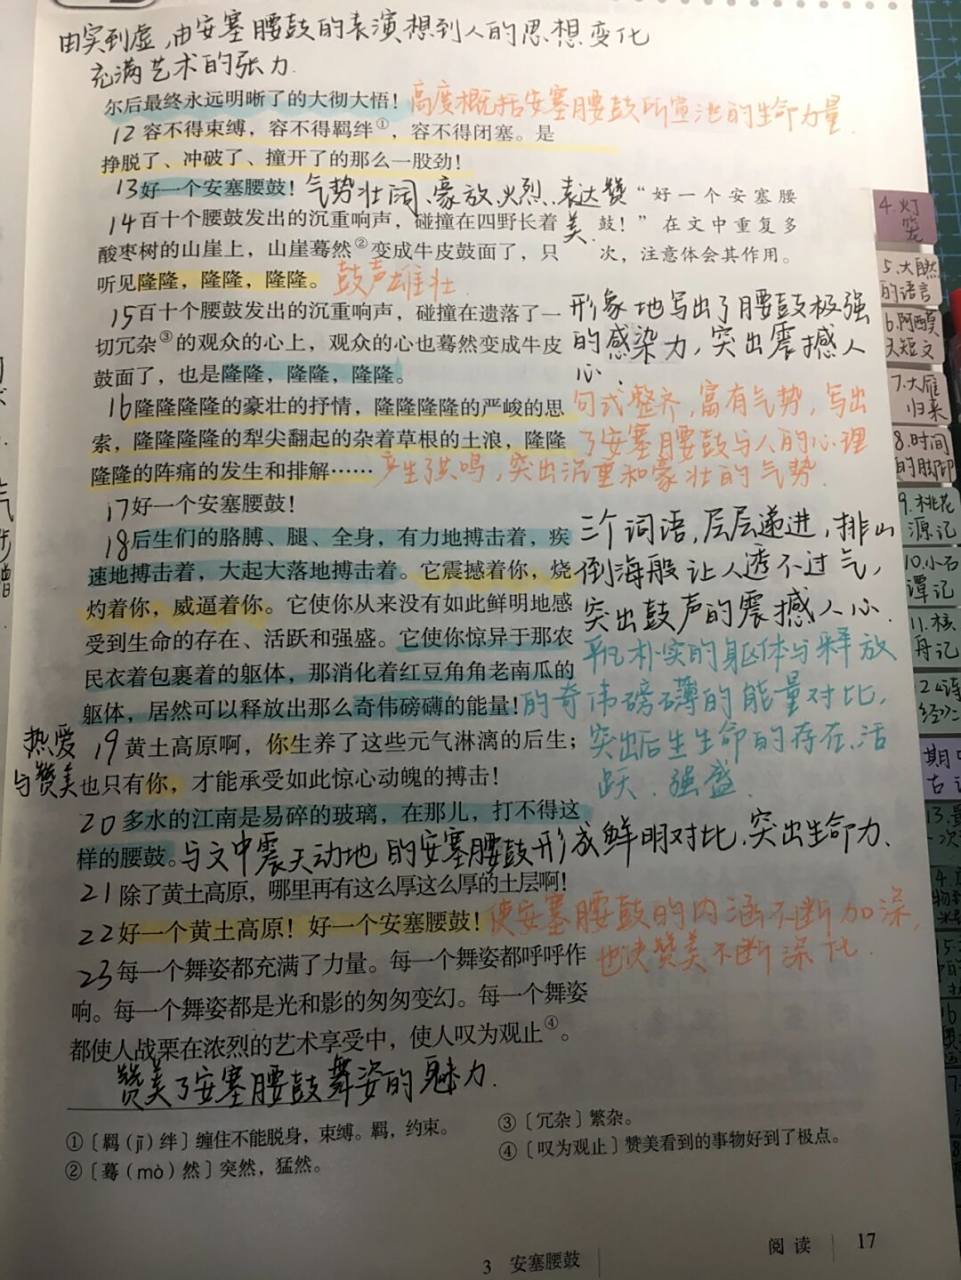 由实到虚,由安塞腰鼓的表演想到人的思想变化
充满艺术的张力.
尔后最终永远明晰了的大彻大悟！高度概括安塞腰鼓所宣泄的生命力量.
12 容不得束缚，容不得羁绊①，容不得闭塞。是
挣脱了、冲破了、撞开了的那么一股劲！
13好一个安塞腰鼓！气势壮阔、豪放、火烈、表达赞美.
“好一个安塞腰
鼓！”在文中重复多
次，注意体会其作用。
14百十个腰鼓发出的沉重响声，碰撞在四野长着
酸枣树的山崖上，山崖蓦然②变成牛皮鼓面了，只
听见隆隆，隆隆，隆隆。鼓声雄壮
15百十个腰鼓发出的沉重响声，碰撞在遗落了一
切冗杂③的观众的心上，观众的心也蓦然变成牛皮
鼓面了，也是隆隆，隆隆，隆隆。
形象地写出了腰鼓极强
的感染力，突出震撼人
心.
16隆隆隆隆的豪壮的抒情，隆隆隆隆的严峻的思
索，隆隆隆隆的犁尖翻起的杂着草根的土浪，隆隆
隆隆的阵痛的发生和排解……
句式整齐，富有气势，写出
了安塞腰鼓与人的心理
产生了共鸣，突出沉重和豪壮的气势.
17好一个安塞腰鼓！
18后生们的胳膊、腿、全身，有力地搏击着，疾
速地搏击着，大起大落地搏击着。它震撼着你，烧
灼着你，威逼着你。它使你从来没有如此鲜明地感
受到生命的存在、活跃和强盛。它使你惊异于那农
民衣着包裹着的躯体，那消化着红豆角角老南瓜的
躯体，居然可以释放出那么奇伟磅礴的能量！
三个词语,层层递进，排山
倒海般让人透不过气，
突出鼓声的震撼人心.
平凡朴实的躯体与释放
的奇伟磅礴的能量对比，
突出后生生命的存在、活
跃、强盛.
热爱
与赞美
19黄土高原啊，你生养了这些元气淋漓的后生；
也只有你，才能承受如此惊心动魄的搏击！
20多水的江南是易碎的玻璃，在那儿，打不得这
样的腰鼓。与文中震天动地的安塞腰鼓形成鲜明对比、突出生命力.
21除了黄土高原，哪里再有这么厚这么厚的土层啊！
22好一个黄土高原！好一个安塞腰鼓！使安塞腰鼓的内涵不断加深,
也使赞美不断深化.
23每一个舞姿都充满了力量。每一个舞姿都呼呼作
响。每一个舞姿都是光和影的匆匆变幻。每一个舞姿
都使人战栗在浓烈的艺术享受中，使人叹为观止④。
赞美了安塞腰鼓舞姿的魅力.
①〔羁（jī）绊〕缠住不能脱身，束缚。羁，约束。
②〔蓦（mò）然〕突然，猛然。
③〔冗杂〕繁杂。
④〔叹为观止〕赞美看到的事物好到了极点。
3 安塞腰鼓
阅读
17
4.灯
笼
5.大自然
的语言
6.阿西莫夫短文
7.大雁
归来
8.时间
的脚印
9.桃花
源记
10.小石
潭记
11.核
舟记